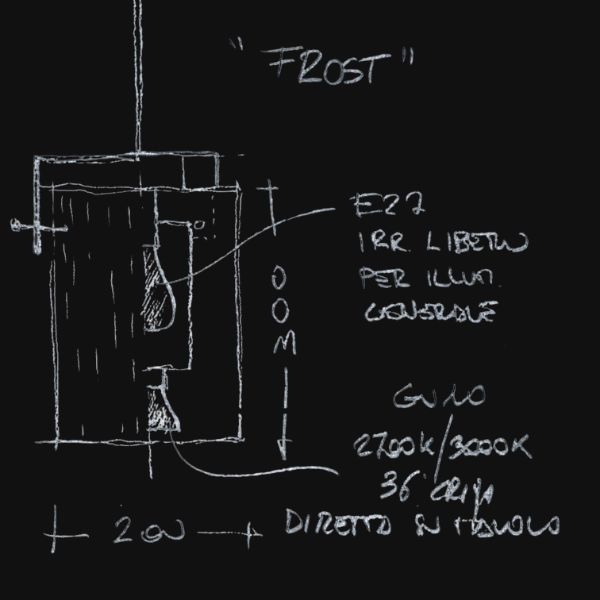 "FROST"
E27
IRR. LIBERA
PER ILLUM.
GENERALE
300
GU10
2700K/3000K
36°
200
DIRETTO SU TAVOLO